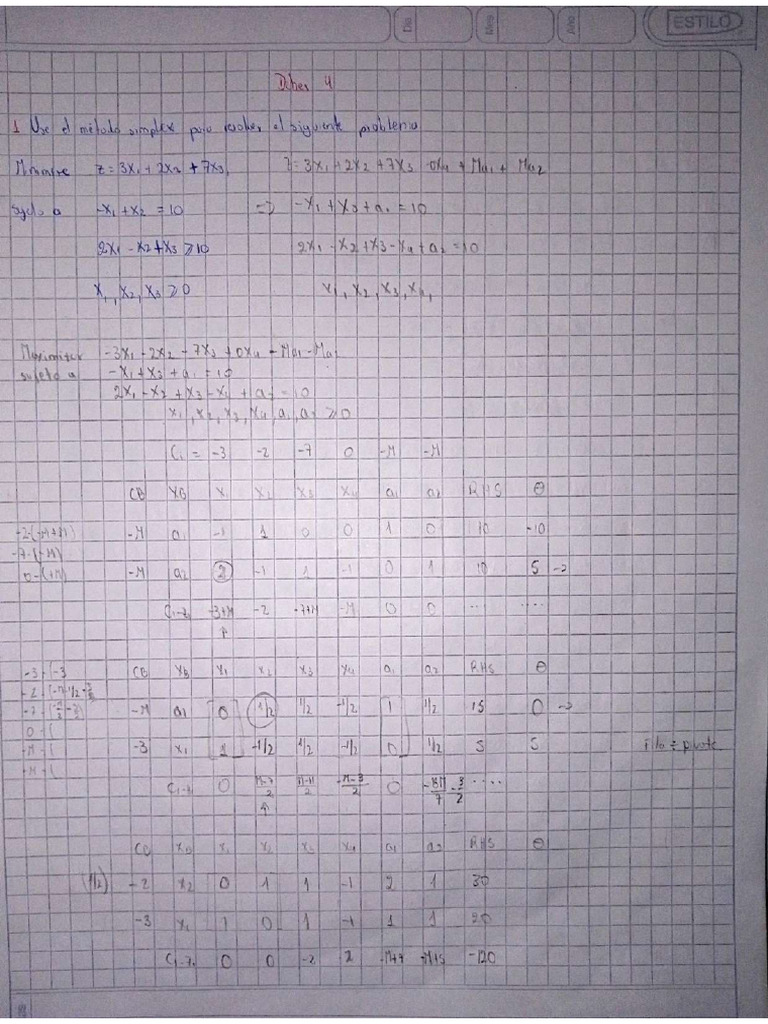 Dia Mes Año ESTILO
Deber 4
1 Use el método simplex para resolver el siguiente problema
Minimizar z = 3x₁ + 2x₂ + 7x₃, z = 3x₁ + 2x₂ + 7x₃ 0x₄ + Ma₁ + Ma₂
sujeto a -x₁ + x₂ = 10 => -x₁ + x₃ + a₁ = 10
2x₁ - x₂ + x₃ ≥ 10 2x₁ - x₂ + x₃ - x₄ + a₂ = 10
x₁, x₂, x₃ ≥ 0 x₁, x₂, x₃, x₄,
Maximizar -3x₁ - 2x₂ - 7x₃ + 0x₄ - Ma₁ - Ma₂
sujeto a -x₁ + x₃ + a₁ = 10
2x₁ - x₂ + x₃ - x₄ + a₂ = 10
x₁, x₂, x₃, x₄, a₁, a₂ ≥ 0
Cⱼ = -3 -2 -7 0 -M -M
CB XB x₁ x₂ x₃ x₄ a₁ a₂ RHS θ
-M a₁ -1 1 0 0 1 0 10 -10
-M a₂ 2 -1 1 -1 0 1 10 5 ->
-3+M -2 -7+M -M 0 0 .... ....
CB XB x₁ x₂ x₃ x₄ a₁ a₂ RHS θ
-M a₁ 0 1/2 1/2 -1/2 1 1/2 15 0 ->
-3 x₁ 1 -1/2 1/2 -1/2 0 1/2 5 5 fila ÷ pivote
0 0 ....
CB XB x₁ x₂ x₃ x₄ a₁ a₂ RHS θ
(1/2) -2 x₂ 0 1 1 -1 2 1 30
-3 x₁ 1 0 1 -1 1 1 20
0 0 -2 -2 -M+7 -M+5 -120